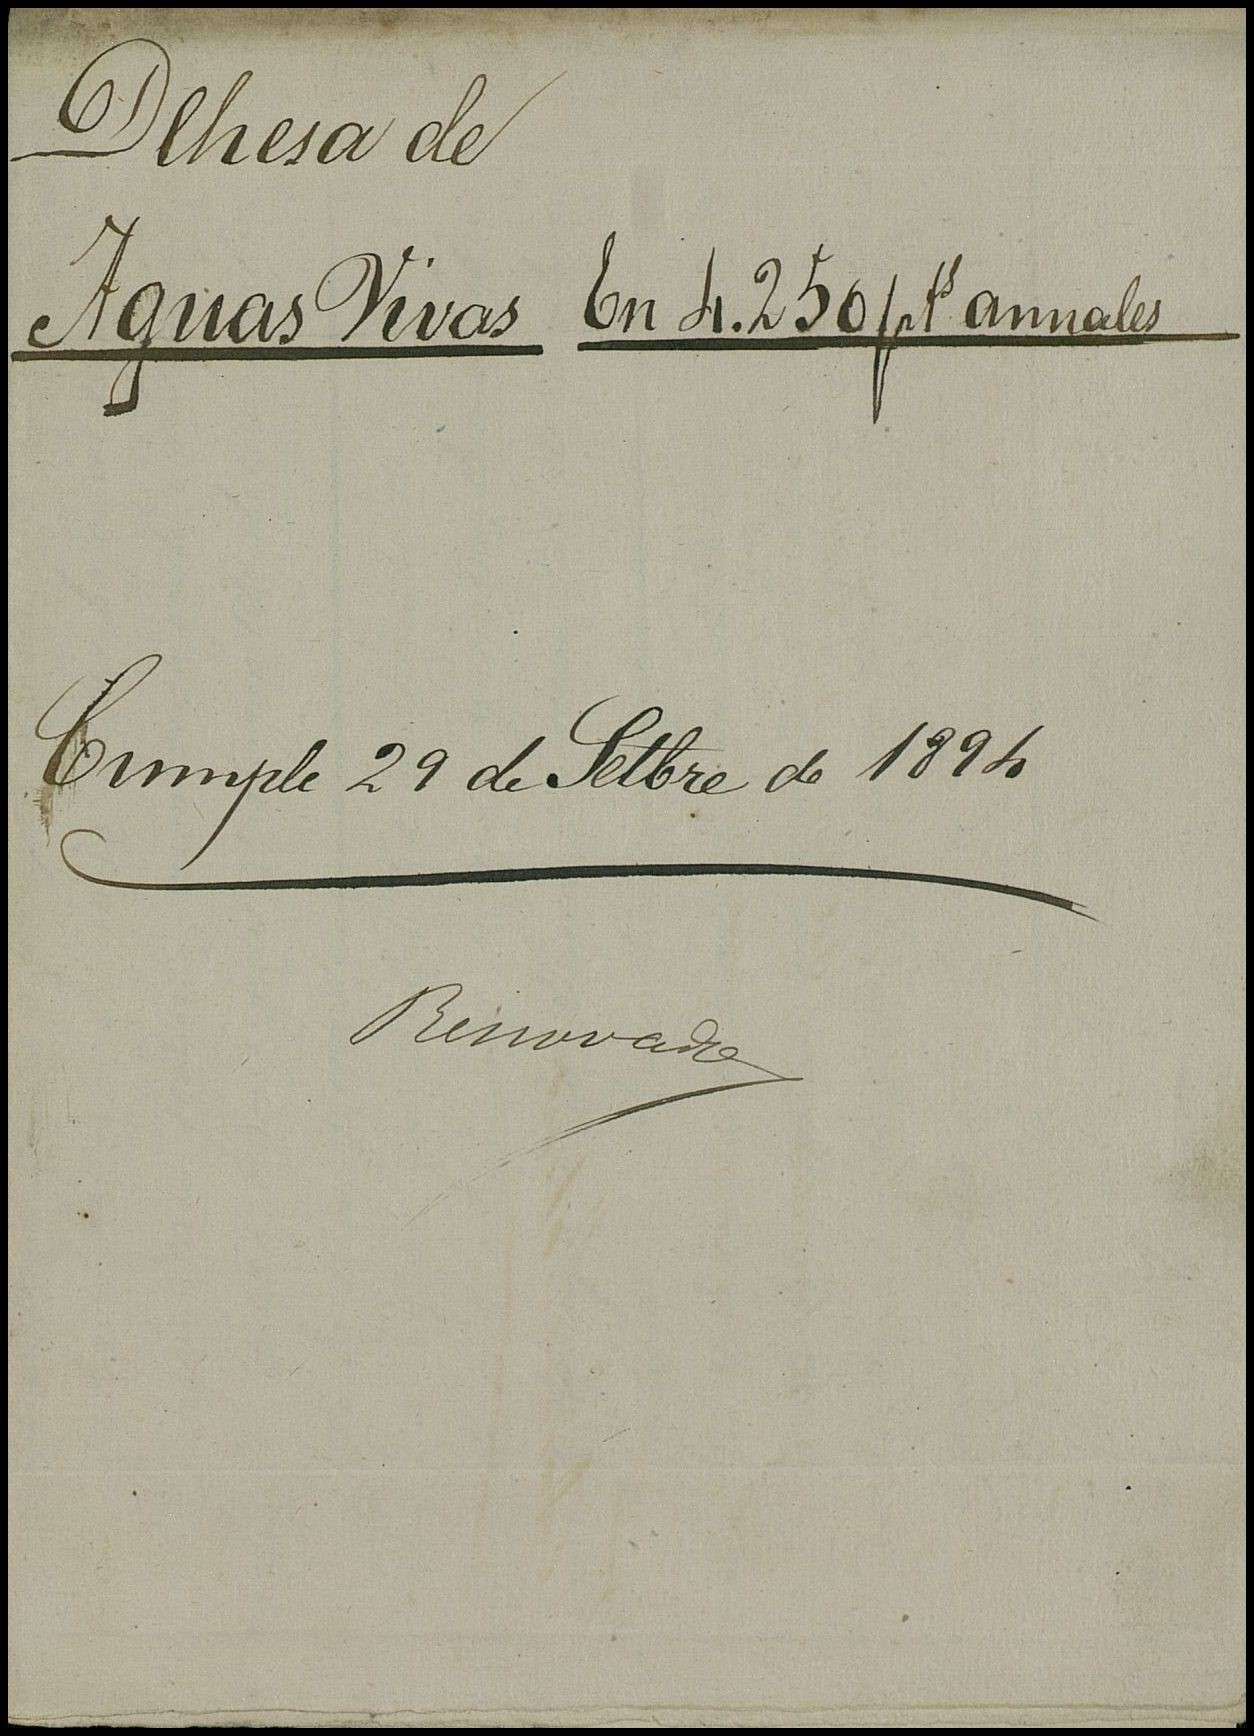 Dehesa de
Aguas Vivas En 4.250 pts annales
Cumple 29 de Setbre de 1894
Renovado